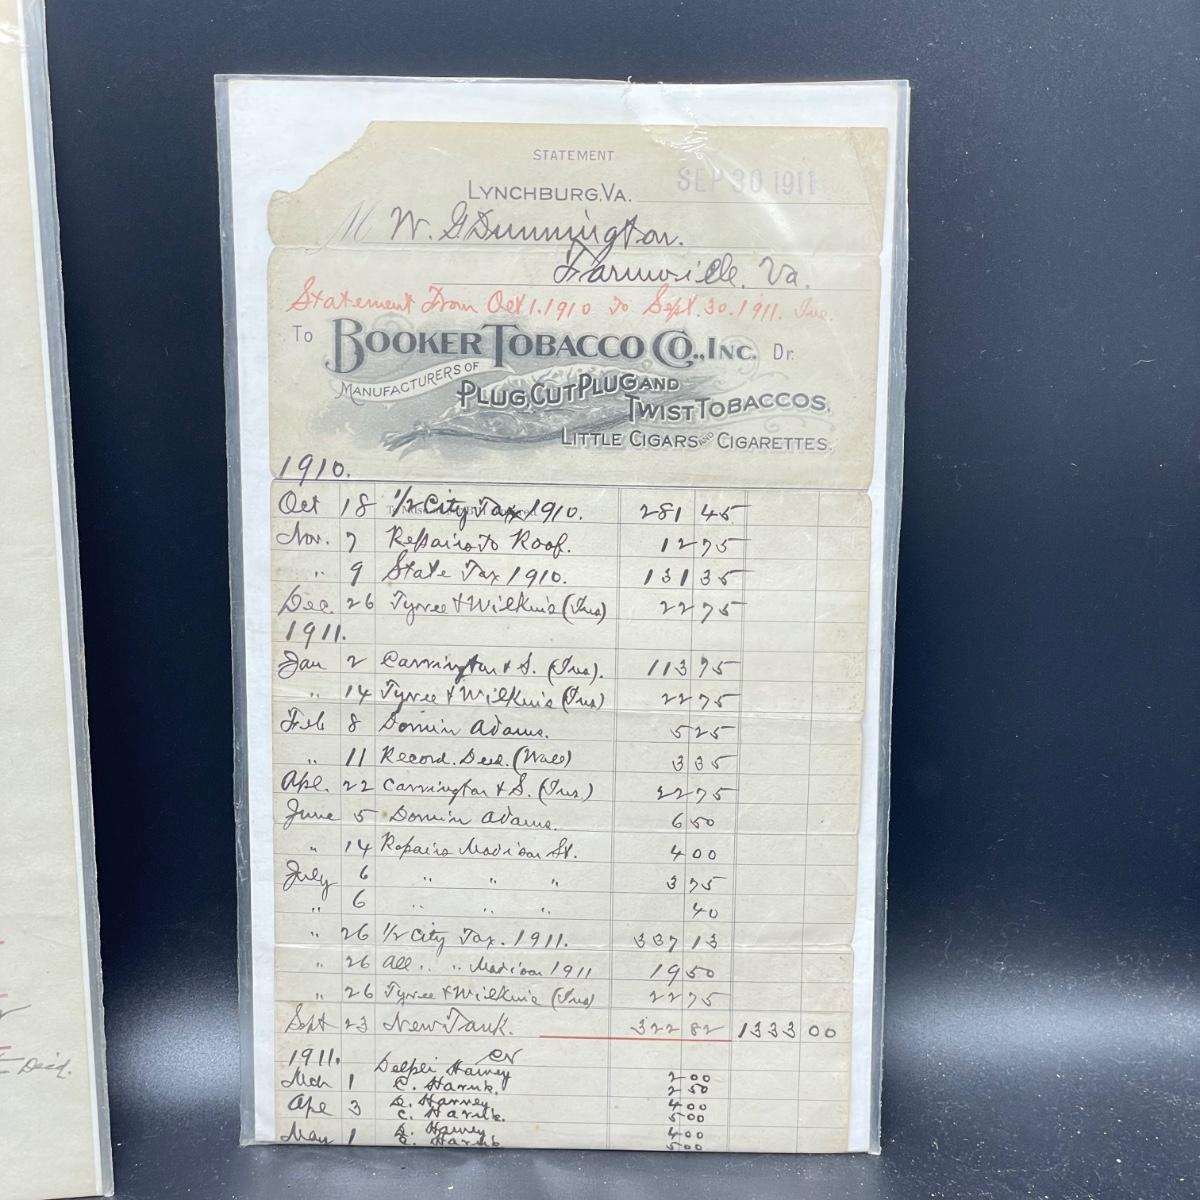 STATEMENT
SEP 30 1911
LYNCHBURG, VA.
M W. G. Dunnington.
Farmville. Va.
Statement From Oct 1. 1910 To Sept. 30. 1911. Inc.
To BOOKER TOBACCO CO., INC. Dr.
MANUFACTURERS OF
PLUG, CUT PLUG AND
TWIST TOBACCOS,
LITTLE CIGARS AND CIGARETTES.
1910.
Oct 18 1/2 City Tax 1910. 281 45
Nov. 7 Repairs To Roof. 12 75
" 9 State Tax 1910. 131 35
Dec. 26 Tyree & Wilkins (Ins) 22 75
1911.
Jan 2 Carrington & S. (Ins). 113 75
" 14 Tyree & Wilkins (Ins) 22 75
Feb 8 Domin Adams. 5 25
" 11 Record. Deed. (Wall) 3 35
Apl. 22 Carrington & S. (Ins) 22 75
June 5 Domin Adams. 6 50
" 14 Repairs Madison St. 4 00
July 6 " " " 3 75
" 6 " " " 40
" 26 1/2 City Tax. 1911. 337 13
" 26 All " " Madison 1911 19 50
" 26 Tyree & Wilkins (Ins) 22 75
Sept 23 New Tank. 322 82 1333 00
1911. CR
Mch 1 Delphi Harvey 2 00
C. 2 50
Apl 3 D. Harvey 4 00
C. 5 00
May 1 D. Harvey 4 00
C. 5 00
Died.